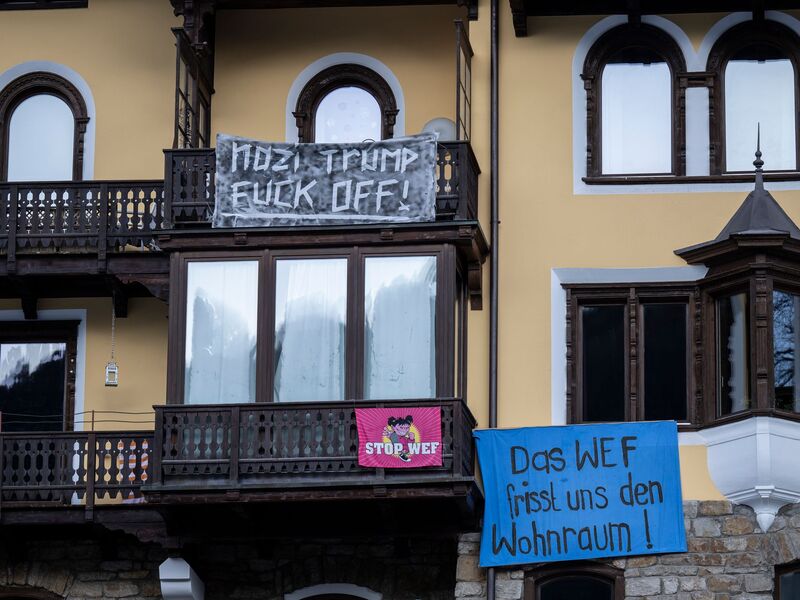 NAZI TRUMP
FUCK OFF!
STOP WEF
Das WEF
frisst uns den
Wohnraum!